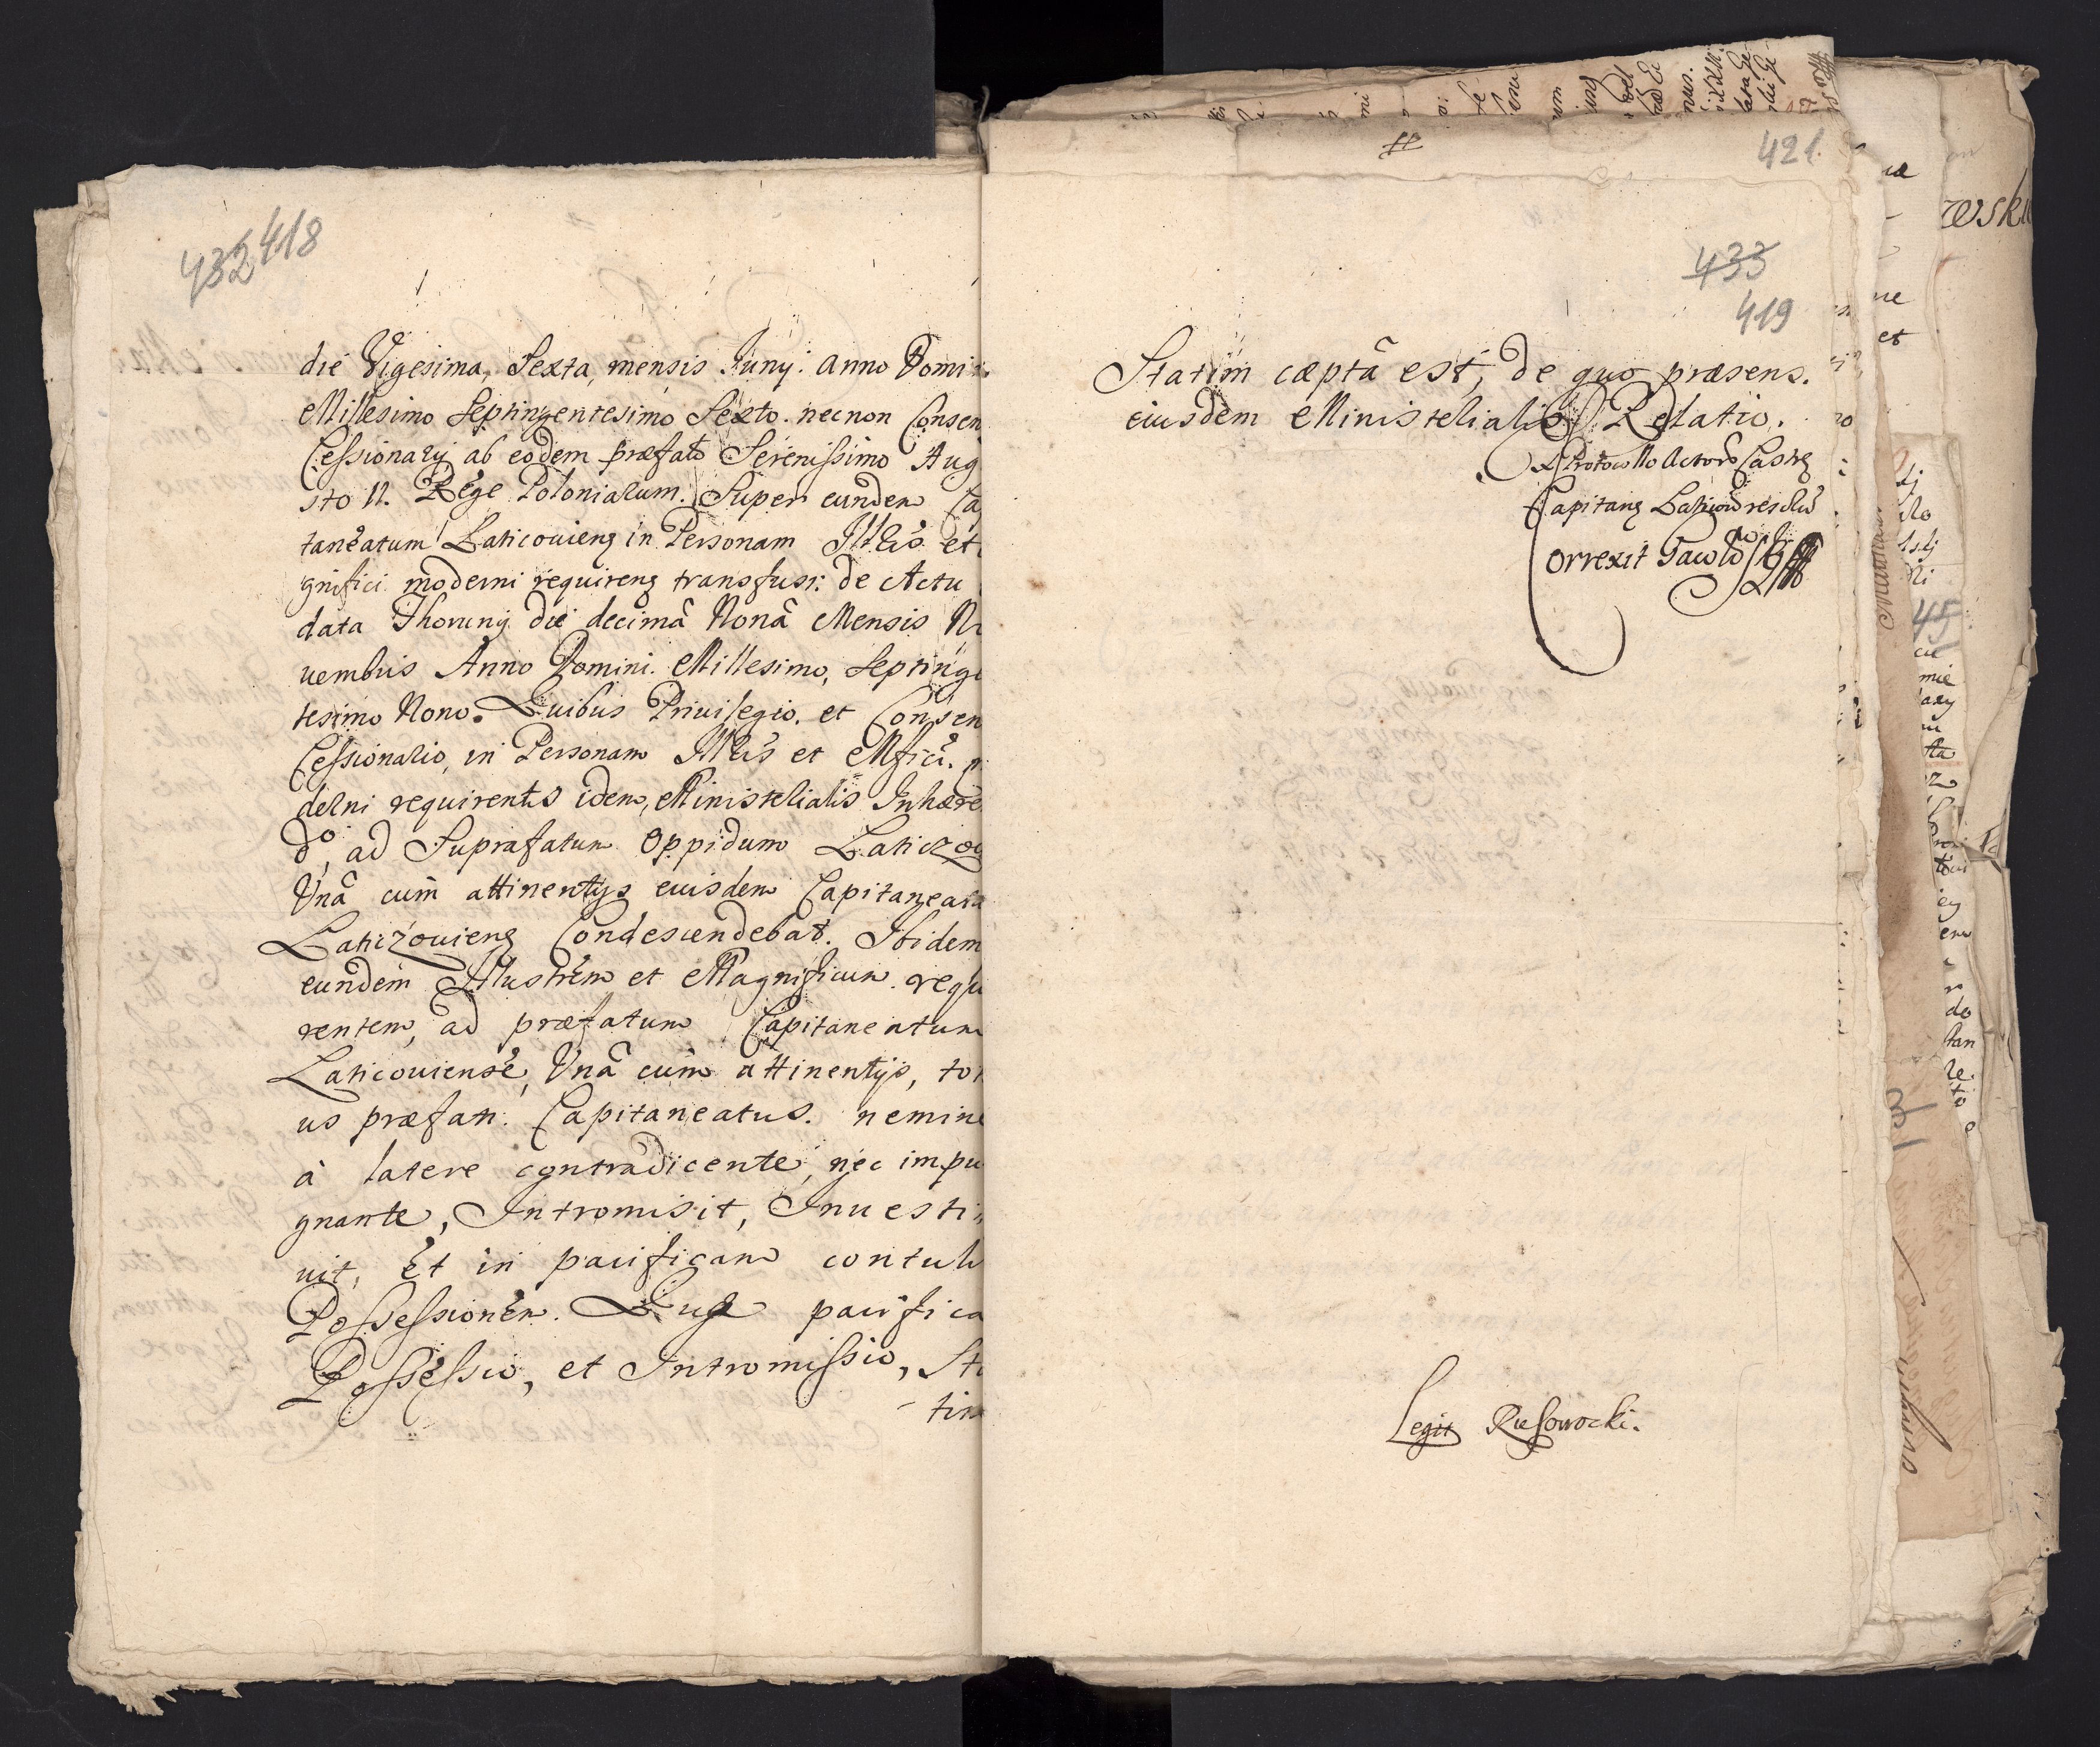 432 418
die Vigesima, Sexta, mensis Juny: anno Domi
Millesimo Septingentesimo Sexto. necnon Consen
Cessionarij ab eodem præfato Serenissimo Aug
sto II. Rege Poloniarum. Super eundem Ca
taneatum Laticouieng in Personam Illris et
gnifici moderni requireng transfuss: de Actu
data Thoruny die decimâ Nonâ Mensis No
uembris Anno Domini. Millesimo, Septinge
tesimo Nono. Quibus Priuilegio. et Consen
Cessionario, in Personam Illris et Mfici.
derni requirentis idem, Ministerialis Inhære
do, ad Suprafatum Oppidum Laticzou
Vnâ cum attinentys eiusdem Capitaneatu
Laticzouieng Condescendebat. Ibidem
eundem Illustrem et Magnificum requi
rentem, ad præfatum Capitaneatum
Laticouiense, Vnâ cum attinentijs, toti
us præfati: Capitaneatus. nemine
à latere contradicente, nec impu
gnante, Intromisit, Inuesti
uit, Et in pacificam contuli
Possessionem. Quæ pacifica
Possessio, et Intromissio, Sta
tim
421.
433
419
Statim cæpta est, de quo præsens.
eiusdem Ministerialis Relatio.
Ex Protocollo Actorum Castrg
Capitang Laticou
Correxit
Legit Rusowocki.